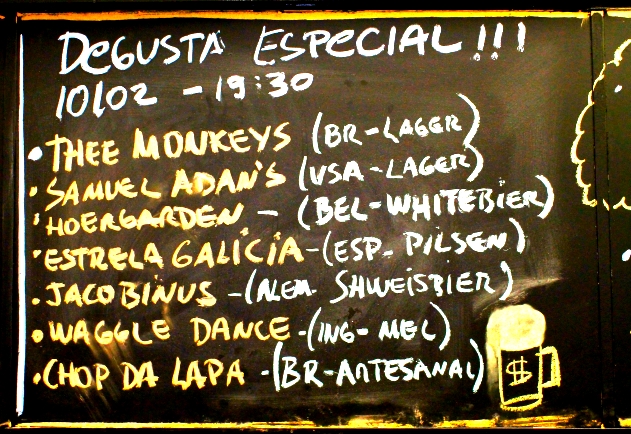 DeGUSTA ESPECIAL!!!
10/02 - 19:30
• THEE MONKEYS (BR-LAGER)
• SAMUEL ADAN'S (USA-LAGER)
• HOERGARDEN - (BEL-WHITEBIER)
• ESTRELA GALICIA-(ESP- PILSEN)
• JACOBINUS -(ALEM- SHWEISBIER)
• WAGGLE DANCE-(ING- MEL)
• CHOP DA LAPA -(BR-ARTESANAL)
$